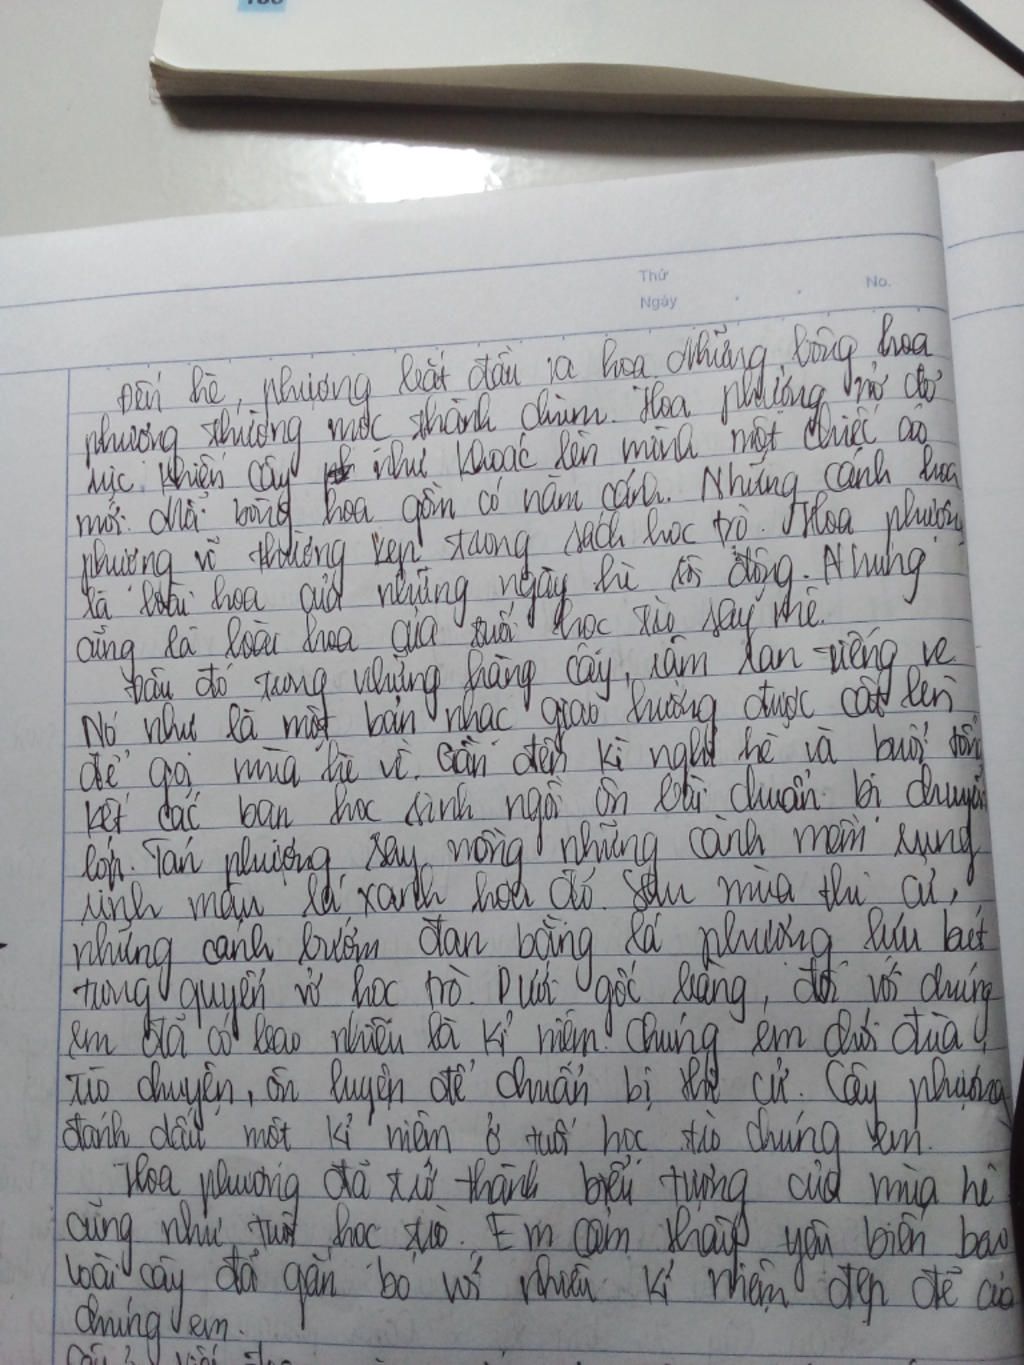 Thứ
Ngày
No.
Đến hè, phượng bắt đầu ra hoa. Những bông hoa
phượng thường mọc thành chùm. Hoa phượng nở đỏ
rực khiến cây như khoác lên mình một chiếc áo
mới. Mỗi bông hoa gồm có năm cánh. Những cánh hoa
phượng vĩ thường kẹp trong sách học trò. Hoa phượng
là loài hoa của những ngày hè sôi động. Nhưng
cũng là loài hoa của tuổi học trò say mê.
Đâu đó trong những hàng cây, râm ran tiếng ve
Nó như là một bản nhạc giao hưởng được cất lên
để gọi mùa hè về. Gần đến kì nghỉ hè và buổi tổng
kết các bạn học sinh ngồi ôn bài chuẩn bị chuyển
lớp. Tán phượng say nồng những cành mềm rung
rinh màu lá xanh hoa đỏ. Sau mùa thi cử,
những cánh bướm đan bằng lá phượng lưu bút
trong quyển vở học trò. Dưới gốc bàng, đối với chúng
em đã có bao nhiêu là kỉ niệm. Chúng em chơi đùa,
trò chuyện, ôn luyện để chuẩn bị thi cử. Cây phượng
đánh dấu một kỉ niệm ở tuổi học trò chúng em.
Hoa phượng đã trở thành biểu tượng của mùa hè
cũng như tuổi học trò. Em cảm thấy yêu biến bao
loài cây đã gắn bó với nhiều kỉ niệm đẹp đẽ của
chúng em.